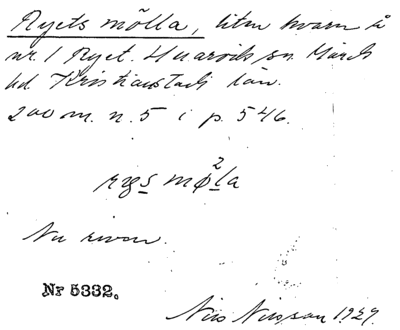 Ryets mölla, liten kvarn å
nr. 1 Ryet. Huaröds sn. Gärds
hd Kristianstads län.
200 m. n. 5 i p. 546.
rys møla
2
Nu riven.
Nr 5332.
Nils Nilsson 1929.